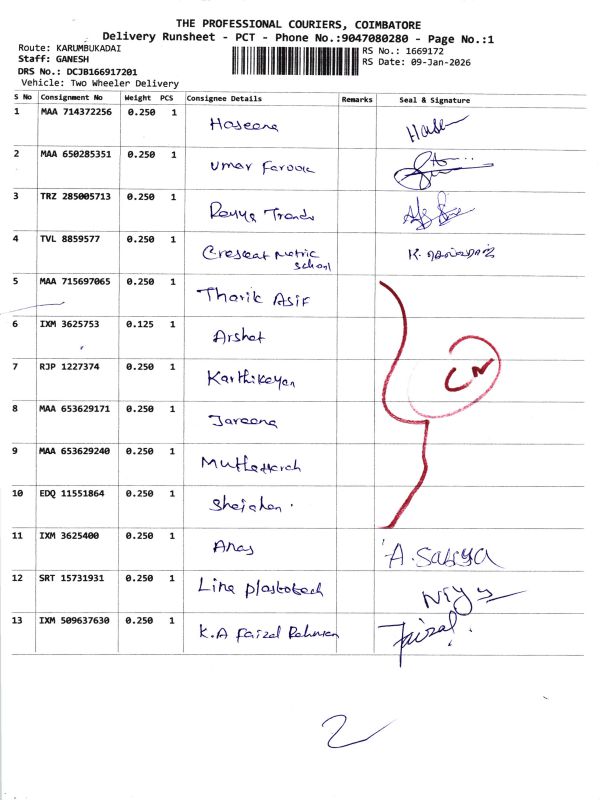 THE PROFESSIONAL COURIERS, COIMBATORE
Delivery Runsheet - PCT - Phone No.:9047080280 - Page No.:1
Route: KARUMBUKADAI
Staff: GANESH
DRS No.: DCJB166917201
Vehicle: Two Wheeler Delivery
RS No.: 1669172
RS Date: 09-Jan-2026
S No Consignment No Weight PCS Consignee Details Remarks Seal & Signature
1 MAA 714372256 0.250 1 Haseena
2 MAA 650285351 0.250 1 Umar Farook
3 TRZ 285005713 0.250 1 Trends
4 TVL 8859577 0.250 1 Crescent Matric
School
5 MAA 715697065 0.250 1 Tharik Asif
6 IXM 3625753 0.125 1 Arshat
7 RJP 1227374 0.250 1 Karthikeyan
8 MAA 653629171 0.250 1 Jareena
9 MAA 653629240 0.250 1
10 EDQ 11551864 0.250 1 Shajahan
CN
11 IXM 3625400 0.250 1 Anas A. Sabiya
12 SRT 15731931 0.250 1 Lina
13 IXM 509637630 0.250 1 K.A Faizal Rahman Faizal
2